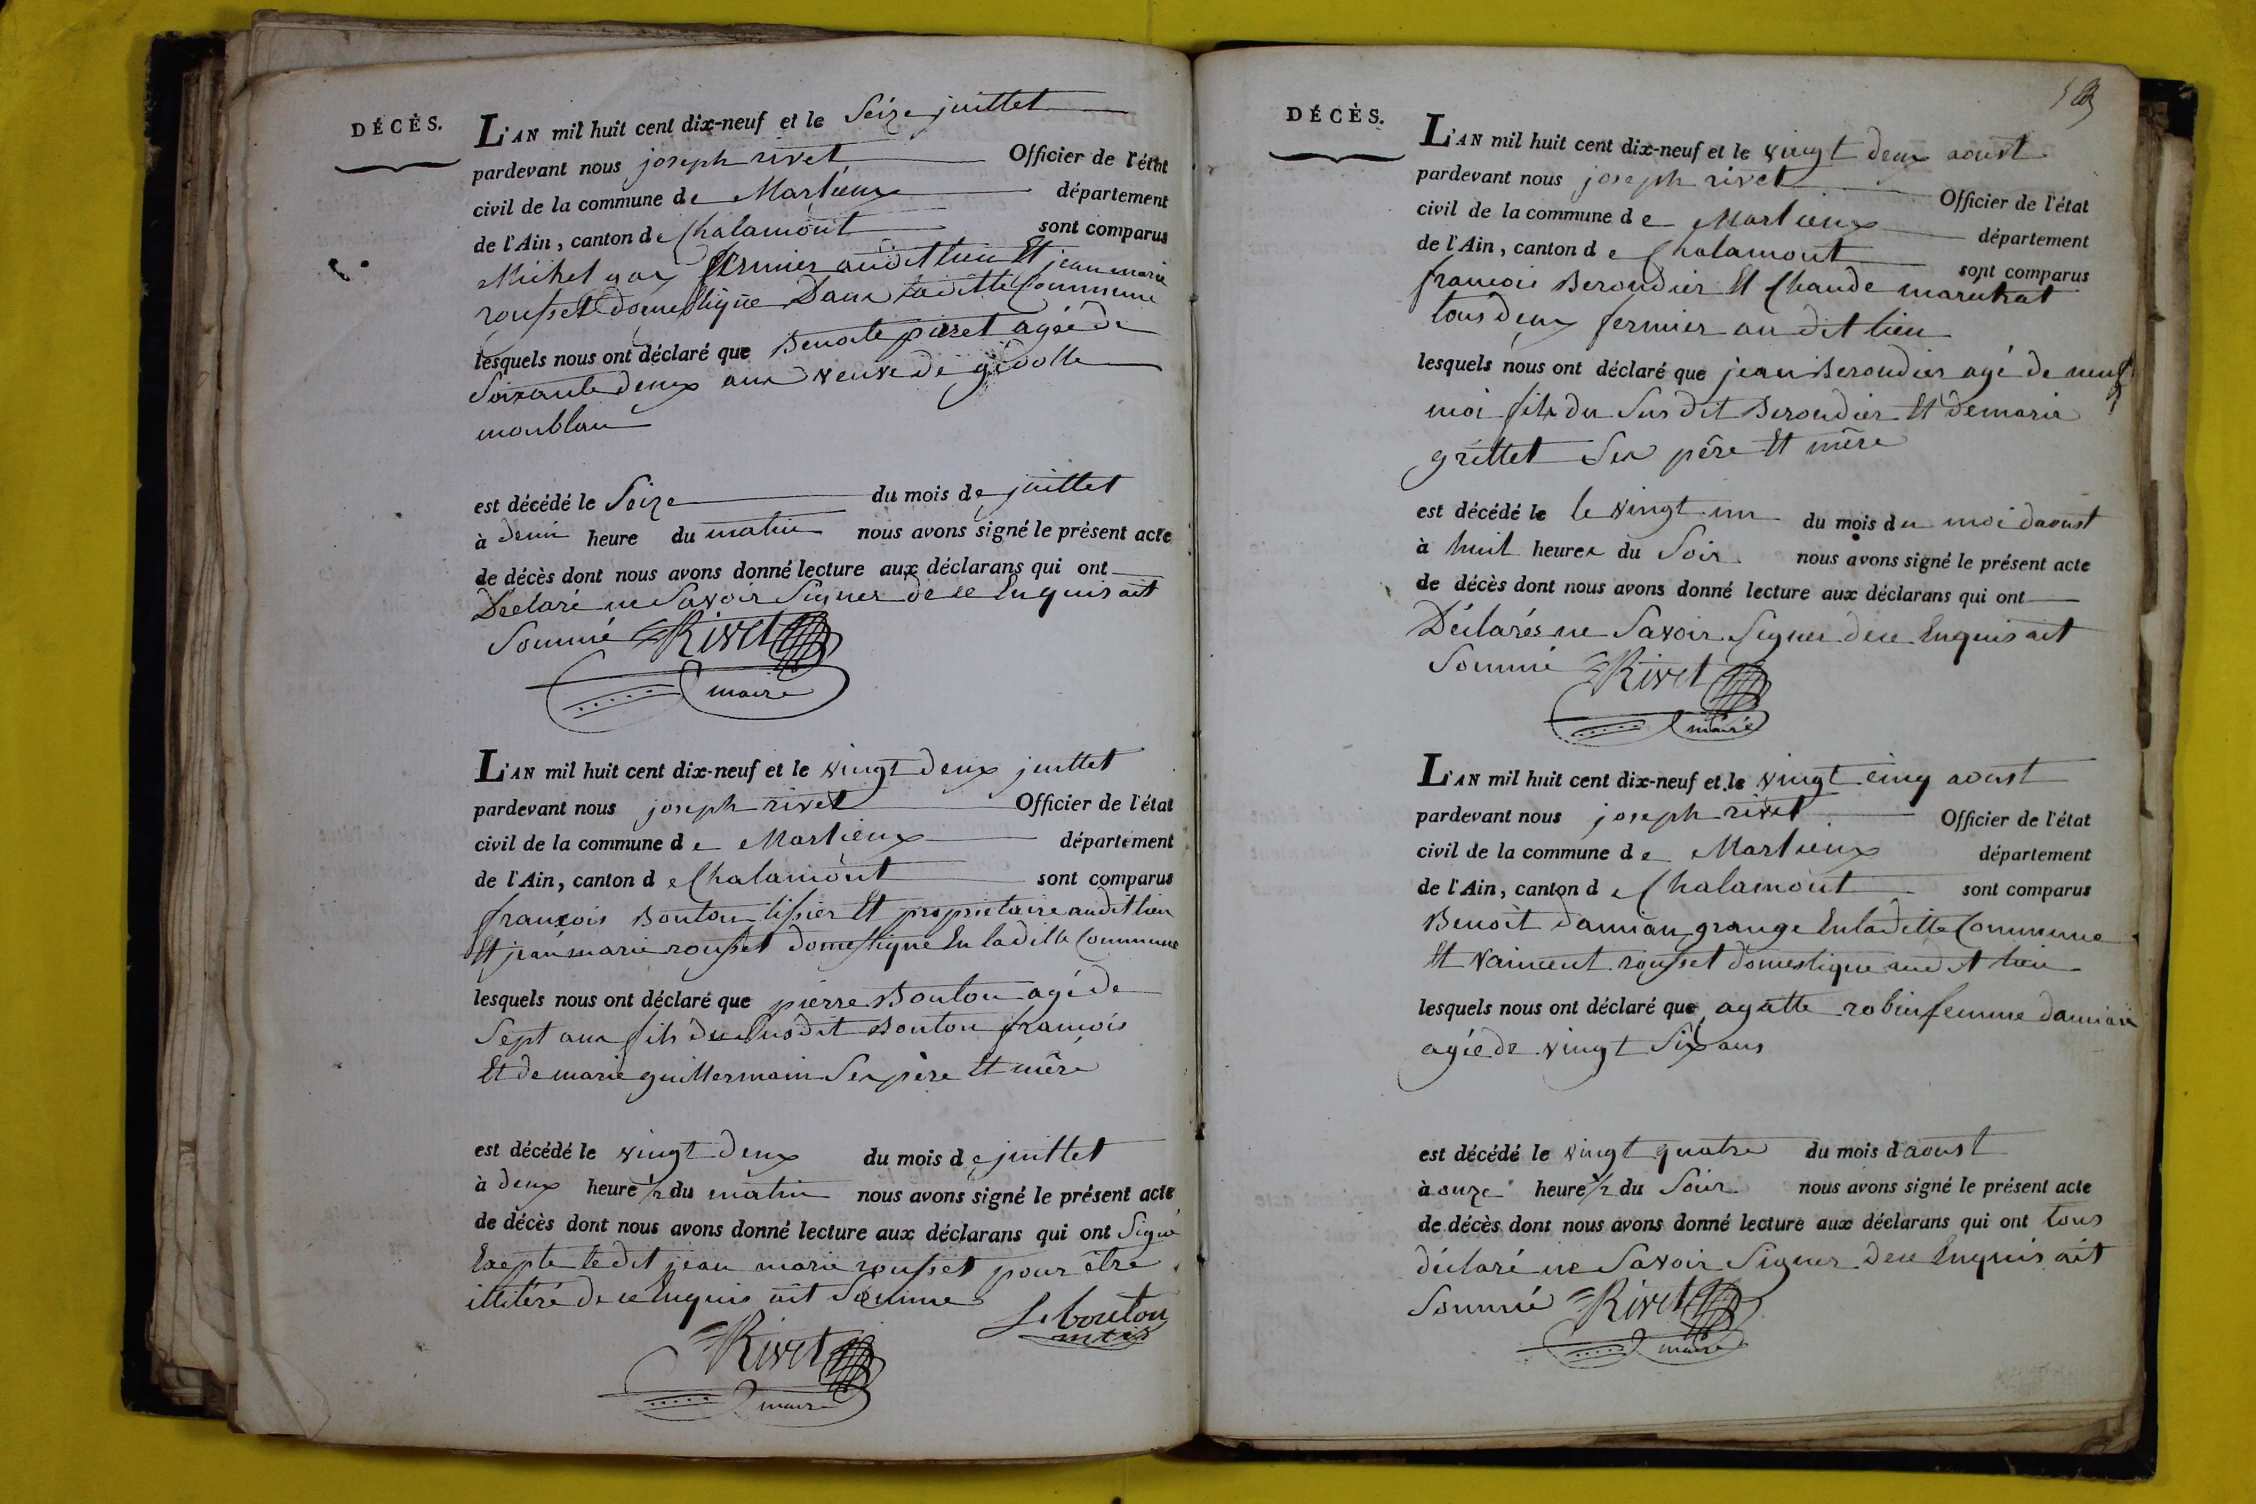 DÉCÈS.
L'AN mil huit cent dix-neuf et le Seize juillet
pardevant nous joseph rivet Officier de l'état
civil de la commune de Marlieux département
de l'Ain, canton de Chalamont sont comparus
Michel fermier audit lieu Et jean marie
rousset domestique Dans laditte Commune
lesquels nous ont déclaré que Benoite agée de
Soixante deux ans veuve de
monblan
est décédé le Seize du mois de juillet
à demi heure du matin nous avons signé le présent acte
de décès dont nous avons donné lecture aux déclarans qui ont
Déclaré ne Savoir Signer de ce Enquis ait
Sommé Rivet
maire
L'AN mil huit cent dix-neuf et le vingt deux juillet
pardevant nous joseph rivet Officier de l'état
civil de la commune de Marlieux département
de l'Ain, canton de Chalamont sont comparus
françois Bouton tissier Et proprietaire audit lieu
Et jean marie rousset domestique En laditte Commune
lesquels nous ont déclaré que pierre Bouton agé de
Sept ans fils du Susdit Bouton françois
Et de marie guillermain Ses père Et mère
est décédé le vingt deux du mois de juillet
à deux heure 1/2 du matin nous avons signé le présent acte
de décès dont nous avons donné lecture aux déclarans qui ont Signé
Exepte ledit jean marie rousset pour être
illitéré de ce Enquis ait Sommé
bouton
Rivet
maire
DÉCÈS.
L'AN mil huit cent dix-neuf et le vingt deux aoust
pardevant nous joseph rivet Officier de l'état
civil de la commune de Marlieux département
de l'Ain, canton de Chalamont sont comparus
francois Beroudier Et Claude
tous deux fermier audit lieu
lesquels nous ont déclaré que jean Beroudier agé de neuf
moi fils du Susdit Beroudier Et de marie
grillet Ses père Et mère
est décédé le le vingt un du mois du moi daoust
à huit heures du Soir nous avons signé le présent acte
de décès dont nous avons donné lecture aux déclarans qui ont
Déclarés ne Savoir Signer de ce Enquis ait
Sommé Rivet
maire
L'AN mil huit cent dix-neuf et le vingt cinq aoust
pardevant nous joseph rivet Officier de l'état
civil de la commune de Marlieux département
de l'Ain, canton de Chalamont sont comparus
Benoit damian grange En laditte Commune
Et vaincent rousset domestique audit lieu
lesquels nous ont déclaré que agatte robin femme damian
agée de vingt Six ans
est décédé le vingt quatre du mois daoust
à onze heure 1/2 du Soir nous avons signé le présent acte
de décès dont nous avons donné lecture aux déclarans qui ont tous
déclaré ne Savoir Signer de ce Enquis ait
Sommé Rivet
maire